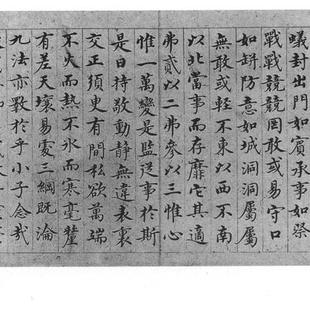 蟻封出門如賓承事如祭
戰戰兢兢罔敢或易守口
如缾防意如城洞洞屬屬
無敢或輕不東以西不南
以北當事而存靡它其適
弗貳以二弗參以三惟心
惟一萬變是監從事於斯
是曰持敬動靜無違表裏
交正須臾有間私欲萬端
不火而熱不冰而寒毫釐
有差天壤易處三綱既淪
九法亦斁於乎小子念哉